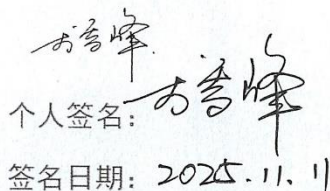 香峰
个人签名：香峰
签名日期：2025.11.11